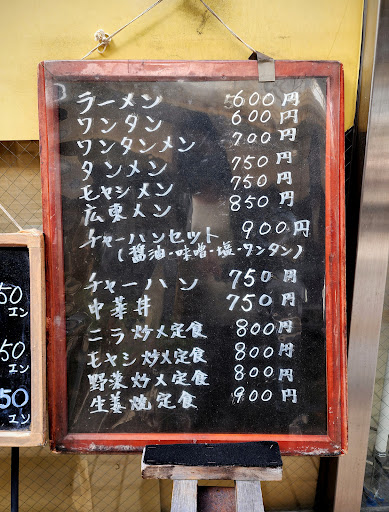 ラーメン 600円
ワンタン 600円
ワンタンメン 700円
タンメン 750円
モヤシメン 750円
広東メン 850円
チャーハンセット 900円
(醤油・味噌・塩・ワンタン)
チャーハン 750円
中華丼 750円
ニラ炒メ定食 800円
モヤシ炒メ定食 800円
野菜炒メ定食 800円
生姜焼定食 900円
50
エン
50
エン
50
エン